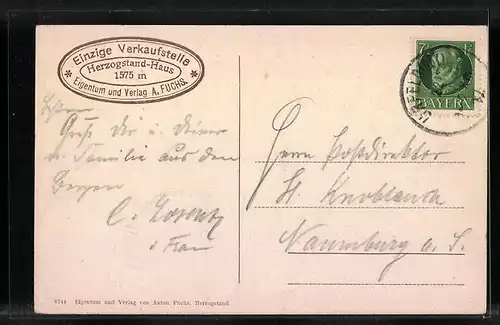 Einzige Verkaufstelle
Herzogstand-Haus
1575 m
* Eigentum und Verlag A. FUCHS. *
7
BAYERN
Gruß Dir u. Deiner
Familie aus den
Bergen
C. Lorentz
u Frau
Herrn Postdirektor
Naumburg a. S.
8744 Eigentum und Verlag von Anton Fuchs, Herzogstand